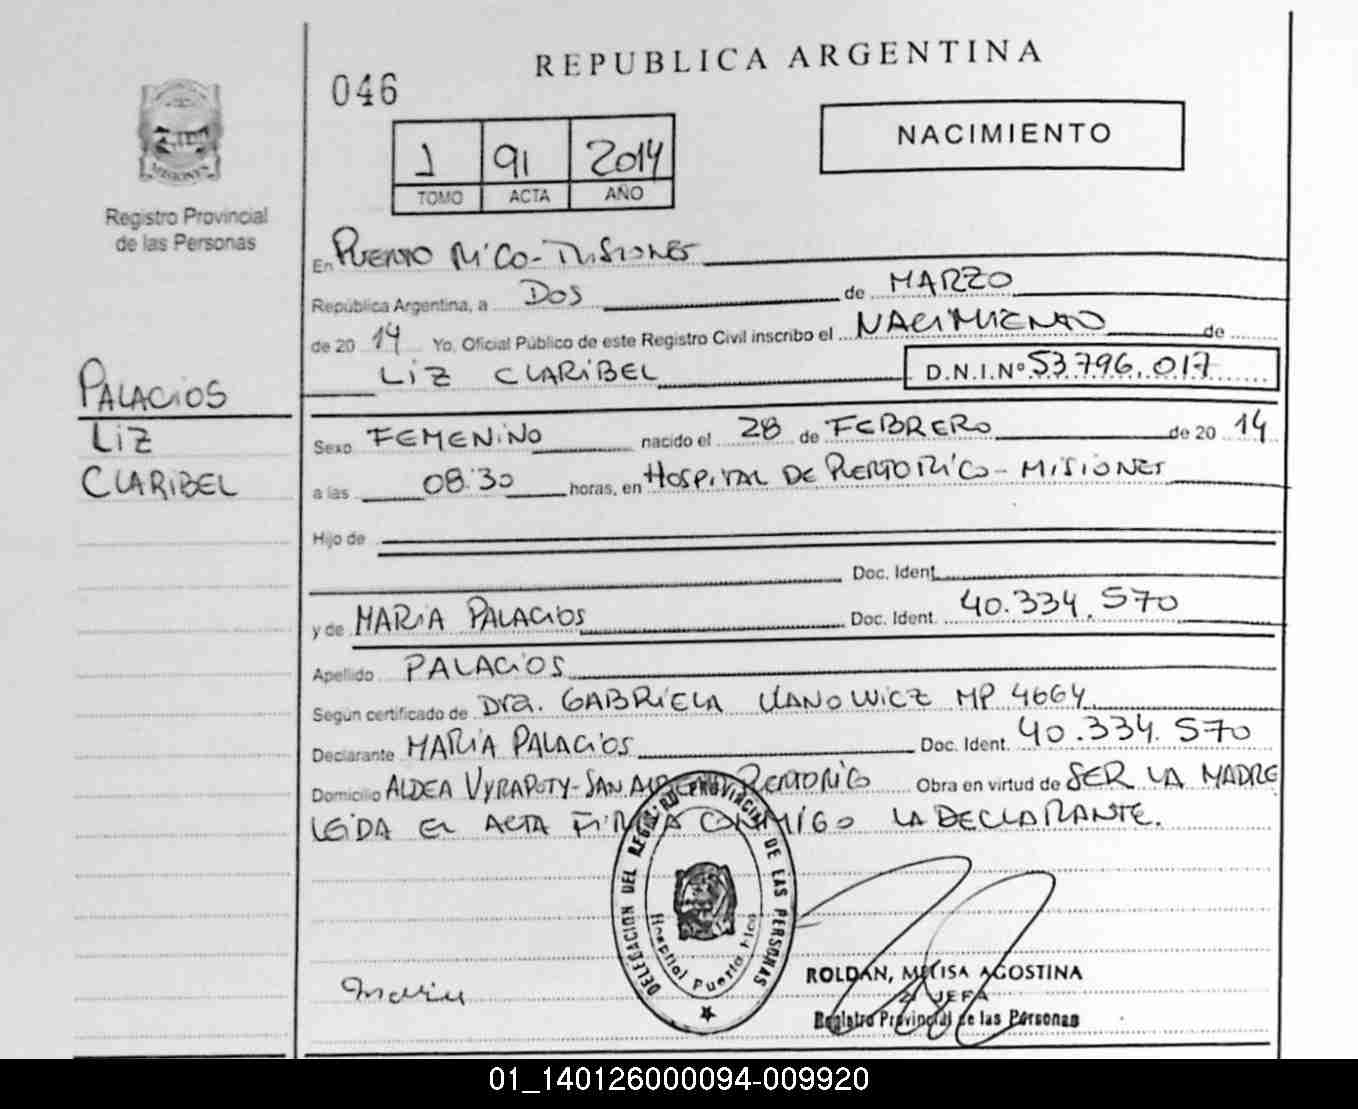 REPUBLICA ARGENTINA
046
NACIMIENTO
1 91 2014
TOMO ACTA AÑO
MISIONES
Registro Provincial
de las Personas
En PUERTO RICO - MISIONES
República Argentina, a DOS de MARZO
de 2014 Yo, Oficial Público de este Registro Civil inscribo el NACIMIENTO de
LIZ CLARIBEL D.N.I.Nº 53.796.017
PALACIOS
LIZ
CLARIBEL
Sexo FEMENINO nacido el 28 de FEBRERO de 2014
a las 08:30 horas, en HOSPITAL DE PUERTO RICO - MISIONES
Hijo de
Doc. Ident.
y de MARIA PALACIOS Doc. Ident. 40.334.570
Apellido PALACIOS
Según certificado de Dra. GABRIELA MP 4664
Declarante MARIA PALACIOS Doc. Ident. 40.334.570
Domicilio ALDEA - SAN PUERTO RICO Obra en virtud de SER LA MADRE
LEIDA EL ACTA FIRMA CONMIGO LA DECLARANTE.
DELEGACION DEL REGISTRO PROVINCIAL DE LAS PERSONAS
Hospital Puerto Rico
ROLDAN, MELISA AGOSTINA
JEFA
Registro Provincial de las Personas
01_140126000094-009920